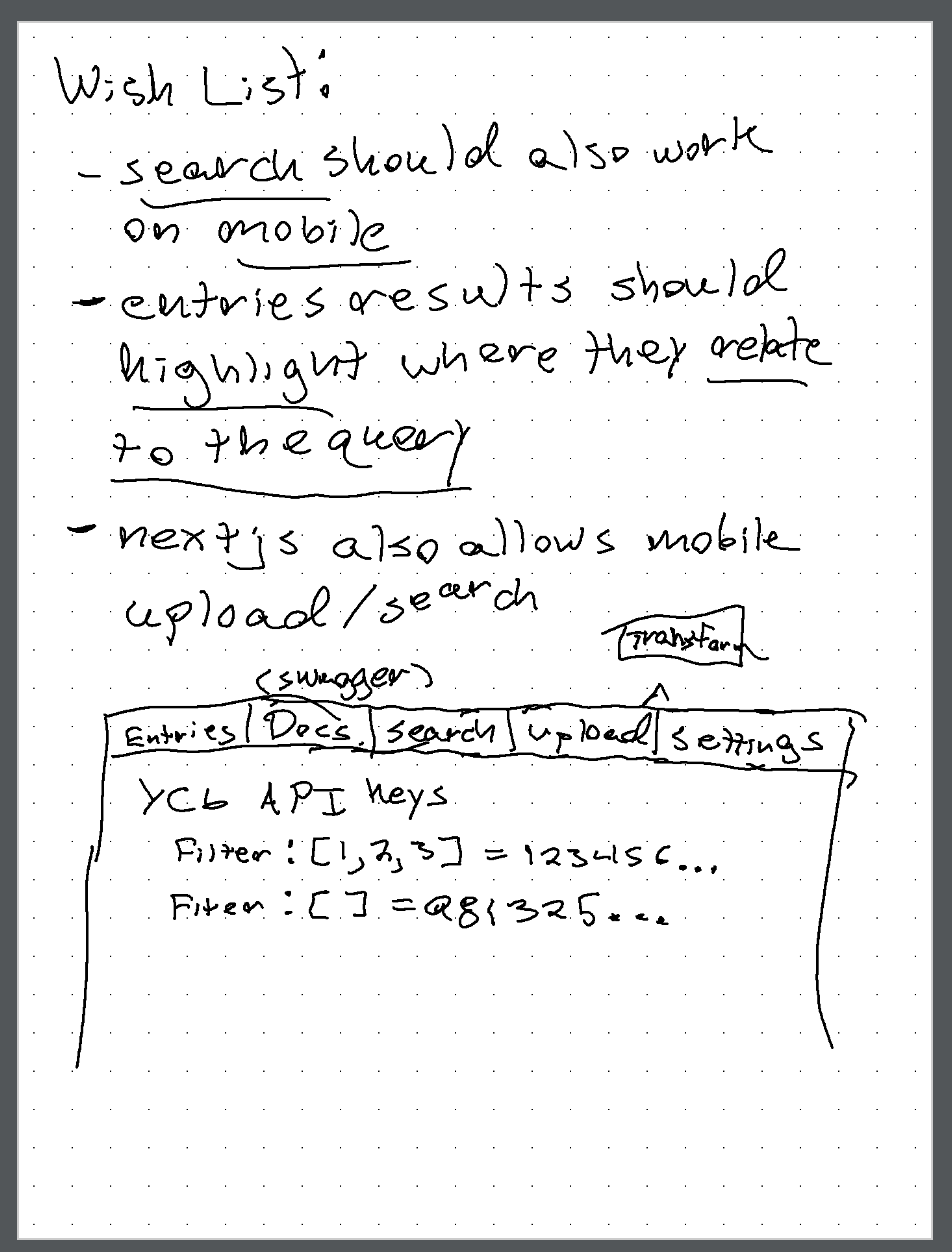 Wish List:
- search should also work
on mobile
- entries results should
highlight where they relate
to the query
- nextjs also allows mobile
upload/search
Transform
(swagger)
^
Entries | Docs | search | upload | settings
YCb API keys
Filter: [1,2,3] = 123456...
Fiter: [ ] = a81325...